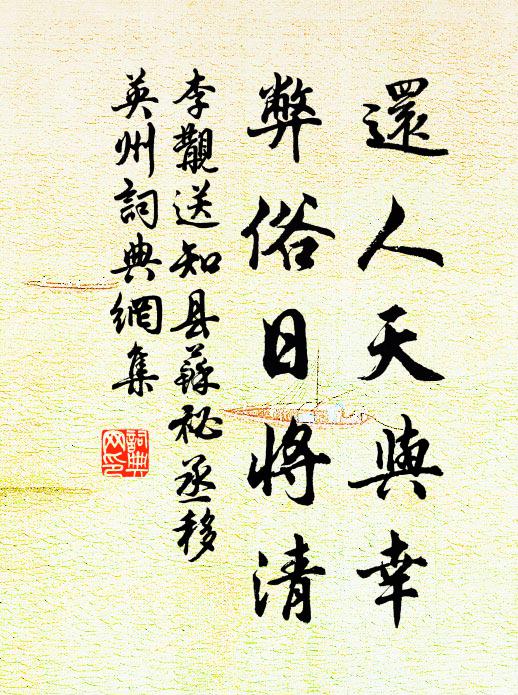 還人天與幸
弊俗日將清
李覯送知县蘇祕丞移
英州詞典網集
詞典网印